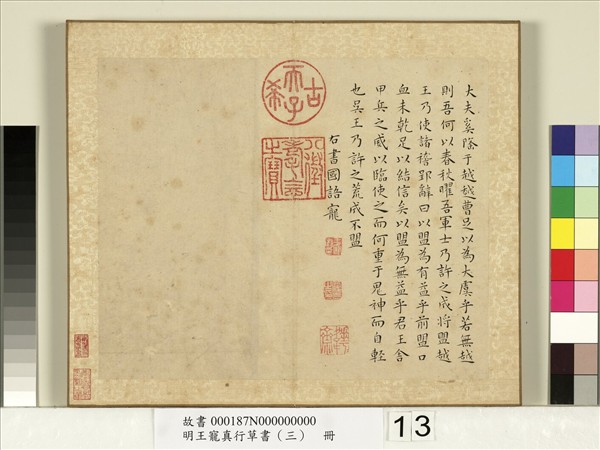 大夫奚隆于越越曹足以為大虞乎若無越
則吾何以春秋曜吾軍士乃許之成將盟越
王乃使諸稽郢辭曰以盟為有益乎前盟口
血未乾足以結信矣以盟為無益乎君王舍
甲兵之威以臨使之而何重于鬼神而自輕
也吳王乃許之荒成不盟
右書國語寵
古希天子
八徵耄念之寶
故書 000187N000000000
明王寵真行草書（三） 冊
13